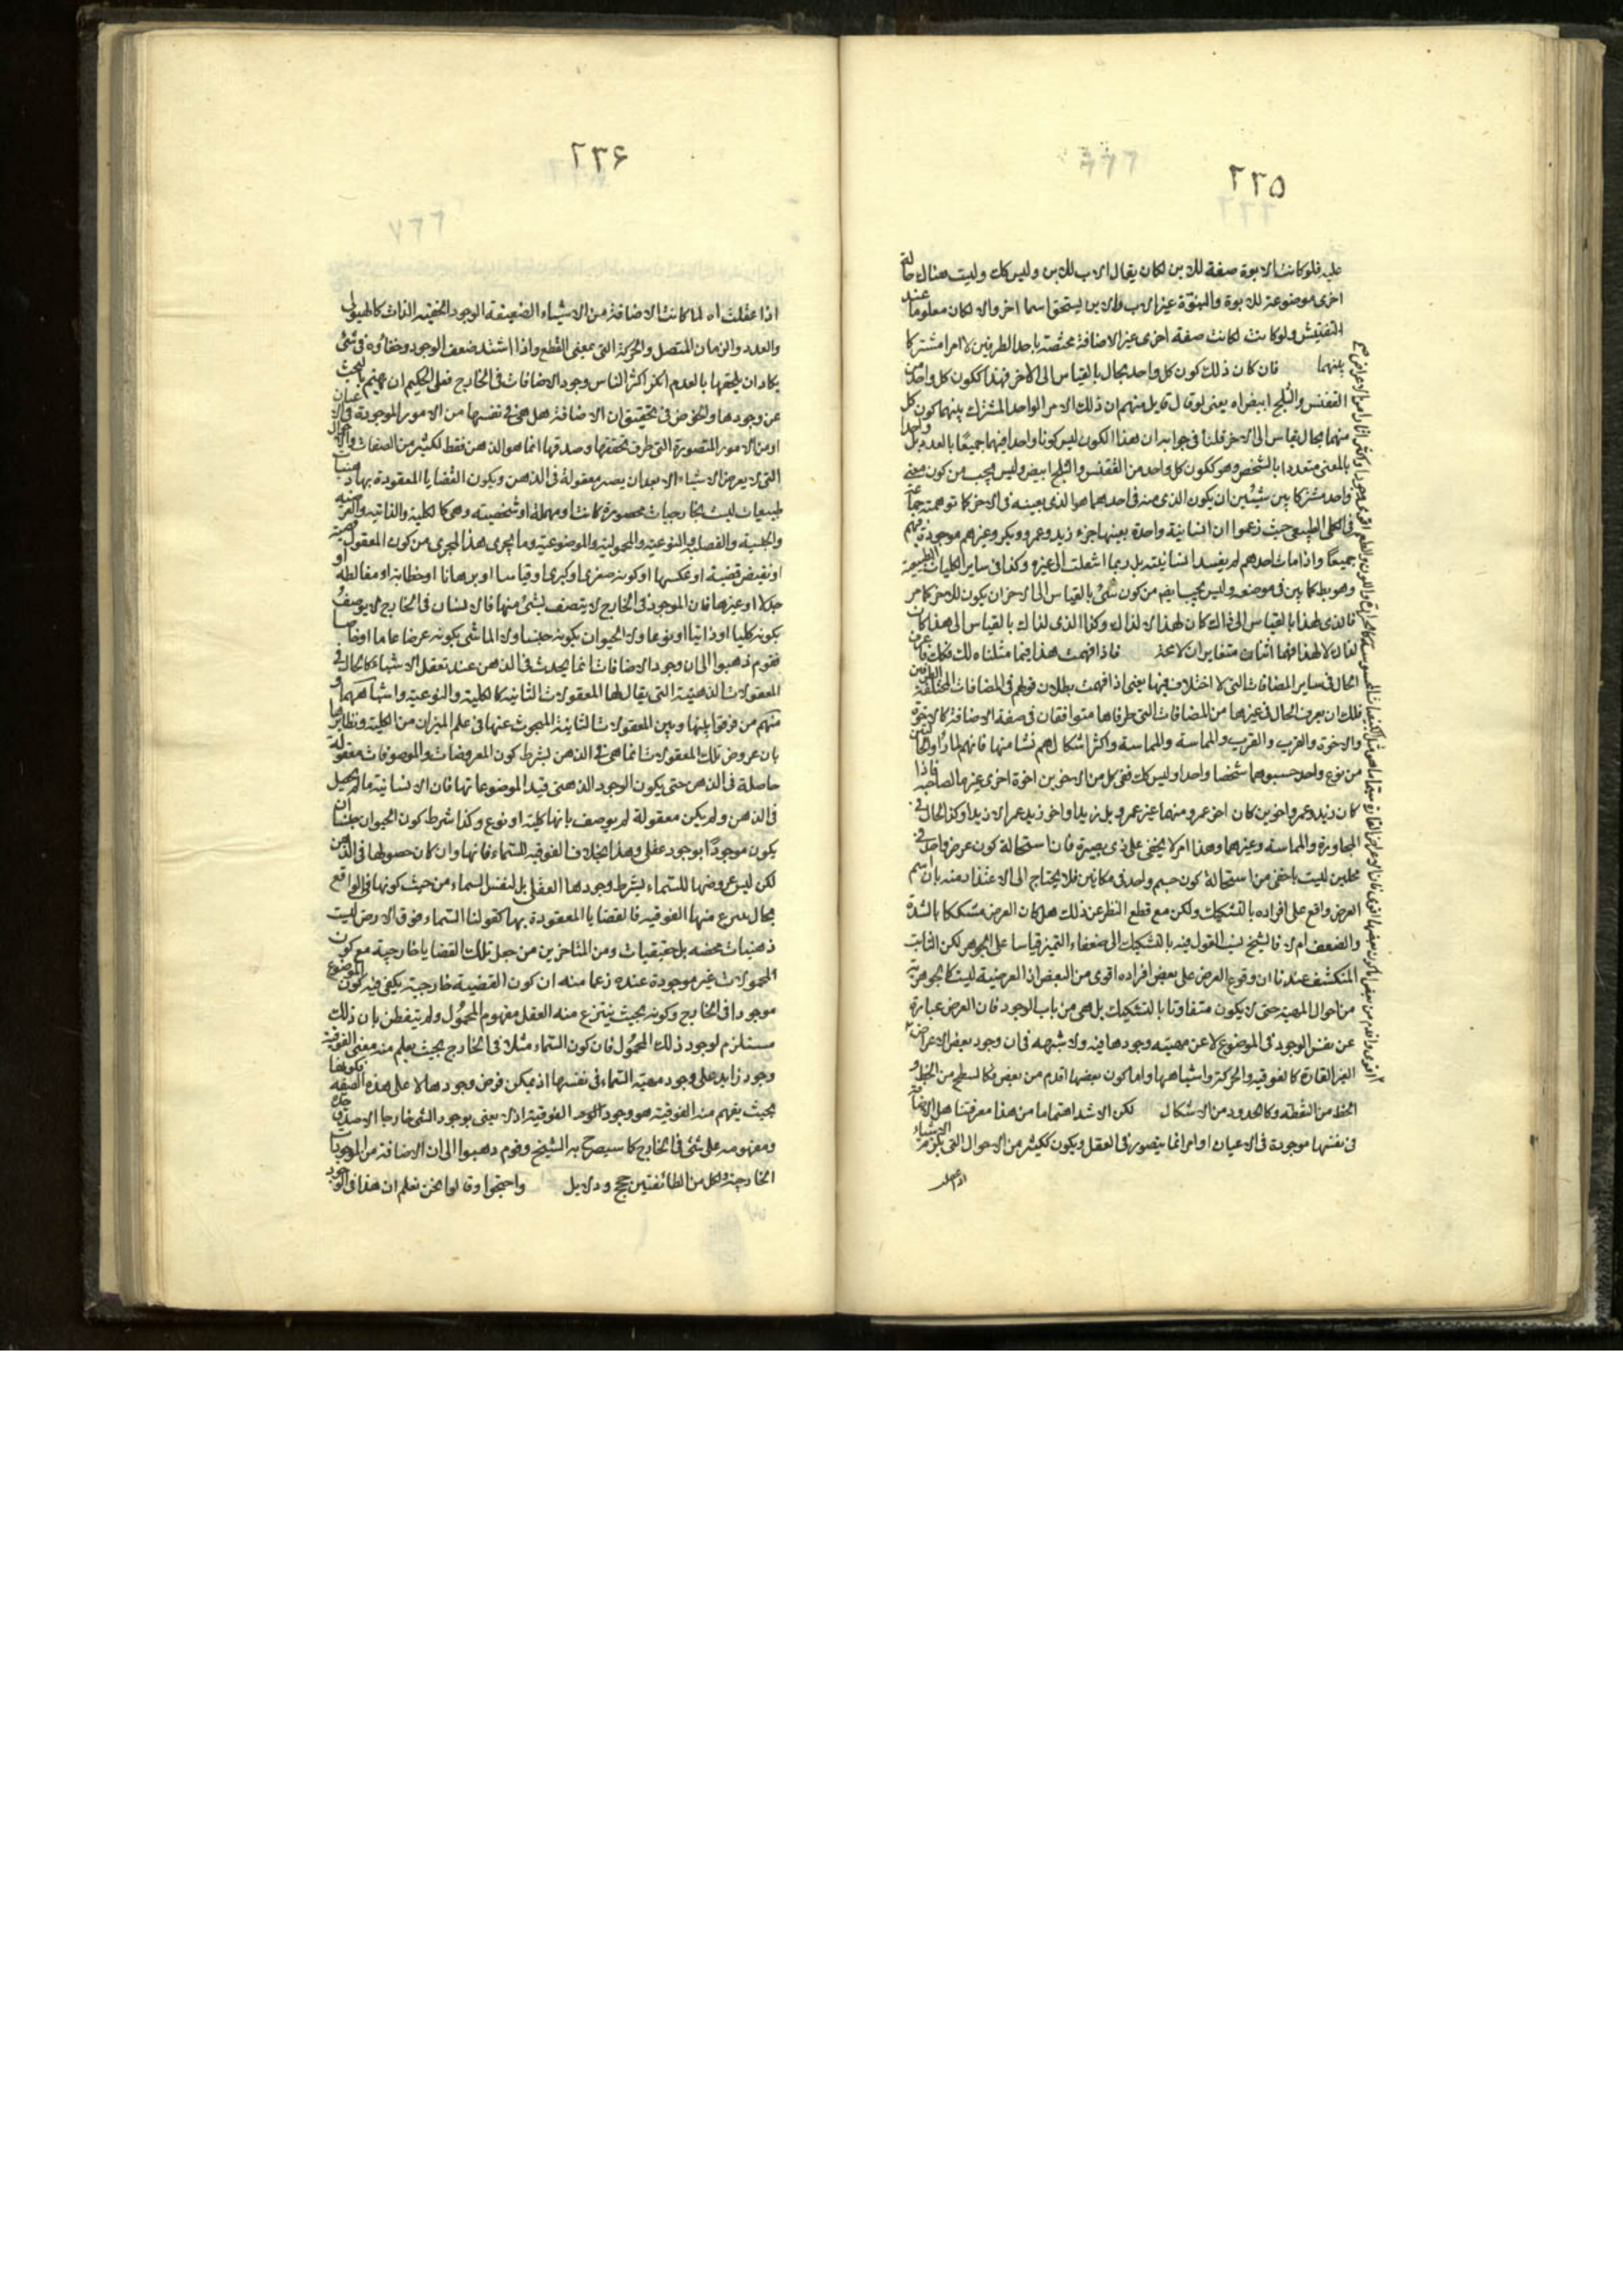 ٢٢٥
عليه فلو كانت الابوة صفة للابن لكان يقال الاب للابن وليس كك وليست هناك حالة
اخرى موضوعة للابوة والبنوة غير الاب والابن يستحق اسما اخر والا لكان معلوما عند
التفتيش ولو كانت لكانت صفة اخرى غير الاضافة مختصة باحد الطرفين لا امرا مشتركا
بينهما فان كان ذلك كون كل واحد بحال بالقياس الى الاخر فهذا ككون كل واحد من
الققنس والثلج ابيض اه يعنى لو قال قايل منهم ان ذلك الامر الواحد المشترك بينهما كون كل
منهما بحال بقياس الى الاخر قلنا فى جوابه ان هذا الكون ليس كونا واحدا فيهما جميعًا بالعدد بل
بالمعنى متعددا بالشخص وهو ككون كل واحد من الققنس والثلج ابيض وليس يجب من كون معنى
واحد مشتركا بين شيئين ان يكون الذى منه فى احدهما هو الذى بعينه فى الاخر كما توهمته جماعة
فى الكلى الطبيعى حيث زعموا ان انسانية واحدة بعينها جزء زيد وعمرو وبكر وغيرهم موجودة فيهم
جميعًا واذا مات احدهم لم يفسد انسانيته بل ربما انتقلت الى غيره وكذا فى ساير الكليات الطبيعية
وهو بط كما بين فى موضعه وليس يجب ايضا من كون شئ بالقياس الى الاخر ان يكون للاخر كما مر
فالذى لهذا بالقياس الى ذاك كان لهذا لا لذاك وكذا الذى لذاك بالقياس الى هذا كان
لذاك لا لهذا فهما اثنان متغايران لا محة فاذا فهمت هذا فيما مثلناه لك فكك فاعرف
الحال فى ساير المضافات التى لا اختلاف فيها يعنى اذا فهمت بطلان قولهم فى المضافات المختلفة الطرفين
فلك ان تعرف الحال فى غيرها من المضافات التى طرفاها متوافقان فى صفة الاضافة كالاخوة
والاخوة والقرب والقرب والمماسة والمماسة واكثر اشكالهم نشا منها فانهم لما راوا الحالتين
من نوع واحد حسبوهما شخصا واحدا وليس كك ففى كل من الاخوين اخوة اخرى غيرها لصاحبه فاذا
كان زيد وعمرو اخوين كان اخو عمرو منهما غير عمرو بل زيدا واخو زيد عمرا لا زيدا وكذا الحال فى
المجاورة والمماسة وغيرهما وهذا امر لا يخفى على ذى بصيرة فان استحالة كون عرض واحد فى
محلين ليست باخفى من استحالة كون جسم واحد فى مكانين فلا يحتاج الى الاعتقاد منه بان اسم
العرض واقع على افراده بالتشكيك ولكن مع قطع النظر عن ذلك هل كان العرض مشككا بالشدة
والضعف ام لا فالشيخ نسب القول فيه بالتشكيك الى ضعفاء التميز قياسا على الجوهر لكن الثابت
المنكشف عندنا ان وقوع العرض على بعض افراده اقوى من البعض اذ العرضية ليست كالجوهرية
من احوال المهية حتى لا يكون متفاوتا بالتشكيك بل هى من باب الوجود فان العرض عبارة
عن نفس الوجود فى الموضوع لا عن مهيته وجودها فيه ولا شبهه فى ان وجود بعض الاعراض
الغير القارة كالفوقية والحركة واشباهها واما كون بعضها اقدم من بعض فكالسطح من الخط و
الخط من النقطة وكالحدود من الاشكال لكن الاشد اهتماما من هذا معرفتنا هل الاضافة
فى نفسها موجودة فى الاعيان او امر انما يتصور فى العقل ويكون ككثير من الاحوال التى يلزم الاشياء
٢٢۶
اذا عقلت اه لما كانت الاضافة من الاشياء الضعيفة الوجود الخفية الذات كالهيولى
والعدد والزمان المتصل والحركة التى بمعنى القطع واذا اشتد ضعف الوجود وخفاؤه فى شئ
يكاد ان يلحقها بالعدم انكر اكثر الناس وجود الاضافات فى الخارج فعلى الحكيم ان يهتم بالبحث
عن وجودها والخوض فى تحقيق ان الاضافة هل هى فى نفسها من الامور الموجودة فى الاعيان
او من الامور المتصورة التى ظرف تحققها وصدقها انما هو الذهن فقط لكثير من الصفات والاحوال
التى لا يعرض الاشياء الا بعد ان يصير معقولة فى الذهن ويكون القضايا المعقودة بها ذهنيات
طبيعيات ليست بخارجيات محصورة كانت او مهملة او شخصيته وهى كالكلية والذاتية والعرضية
والجنسية والفصلية والنوعية والمحمولية والموضوعية وما يجرى هذا المجرى من كون المعقول قضية
او نقيض قضية او عكسها او كونه صغرى او كبرى او قياسا او برهانا او خطابة او مغالطه او
جدلا او غيرها فان الموجود فى الخارج لا يتصف بشئ منها فالانسان فى الخارج لا يوصف
بكونه كليا او ذاتيا او نوعا ولا الحيوان بكونه جنسا ولا الماشى بكونه عرضا عاما او خاصا
فقوم ذهبوا الى ان وجود الاضافات انما يحدث فى الذهن عند تعقل الاشياء كالحال فى
المعقولات الذهنية التى يقال لها المعقولات الثانية كالكلية والنوعية واشباههما و
منهم من فرق بينها وبين المعقولات الثانية المبحوث عنها فى علم الميزان من الكلية ونظايرها
بان عروض تلك المعقولات انما هى فى الذهن بشرط كون المعروضات والموصوفات معقولة
حاصلة فى الذهن حتى يكون الوجود الذهنى قيدا لموضوعاتها فان الانسانية ما لم يحصل
فى الذهن ولم يكن معقولة لم يوصف بانها كلية او نوع وكذا شرط كون الحيوان جنسا ان
يكون موجودًا بوجود عقلى وهذا بخلاف الفوقية للسماء فانها وان كان حصولها فى الذهن
لكن ليس عروضها للسماء بشرط وجودها العقلى بل لنفس السماء من حيث كونها فى الواقع
بحال ينتزع منها الفوقية فالقضايا المعقودة بها كقولنا السماء فوق الارض ليست
ذهنيات محضه بل حقيقيات ومن المتاخرين من جعل تلك القضايا خارجية مع كون
المحمولات غير موجودة عنده زعما منه ان كون القضية خارجية يكفى فيه كون الموضوع
موجودا فى الخارج وكونه بحيث ينتزع منه العقل مفهوم المحمول ولم يتفطن بان ذلك
مستلزم لوجود ذلك المحمول فان كون السماء مثلا فى الخارج بحيث يعلم منه معنى الفوقية
وجود زايد على وجود مهية السماء فى نفسها اذ يمكن فرض وجودها لا على هذه الصفه
بحيث يفهم منه الفوقية هو وجود الفوقية اذ لا يعنى بوجود الشئ خارجا الا صدق حده
ومفهومه على شئ فى الخارج كما سيصرح به الشيخ وقوم ذهبوا الى ان الاضافة من الموجودات
الخارجية ولكل من الطائفتين حجج ودلايل واحتجوا وقالوا نحن نعلم ان هذا فى الوجود